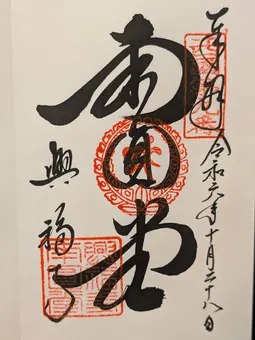 奉拝 令和六年十月二十八日
南圓堂
興福寺